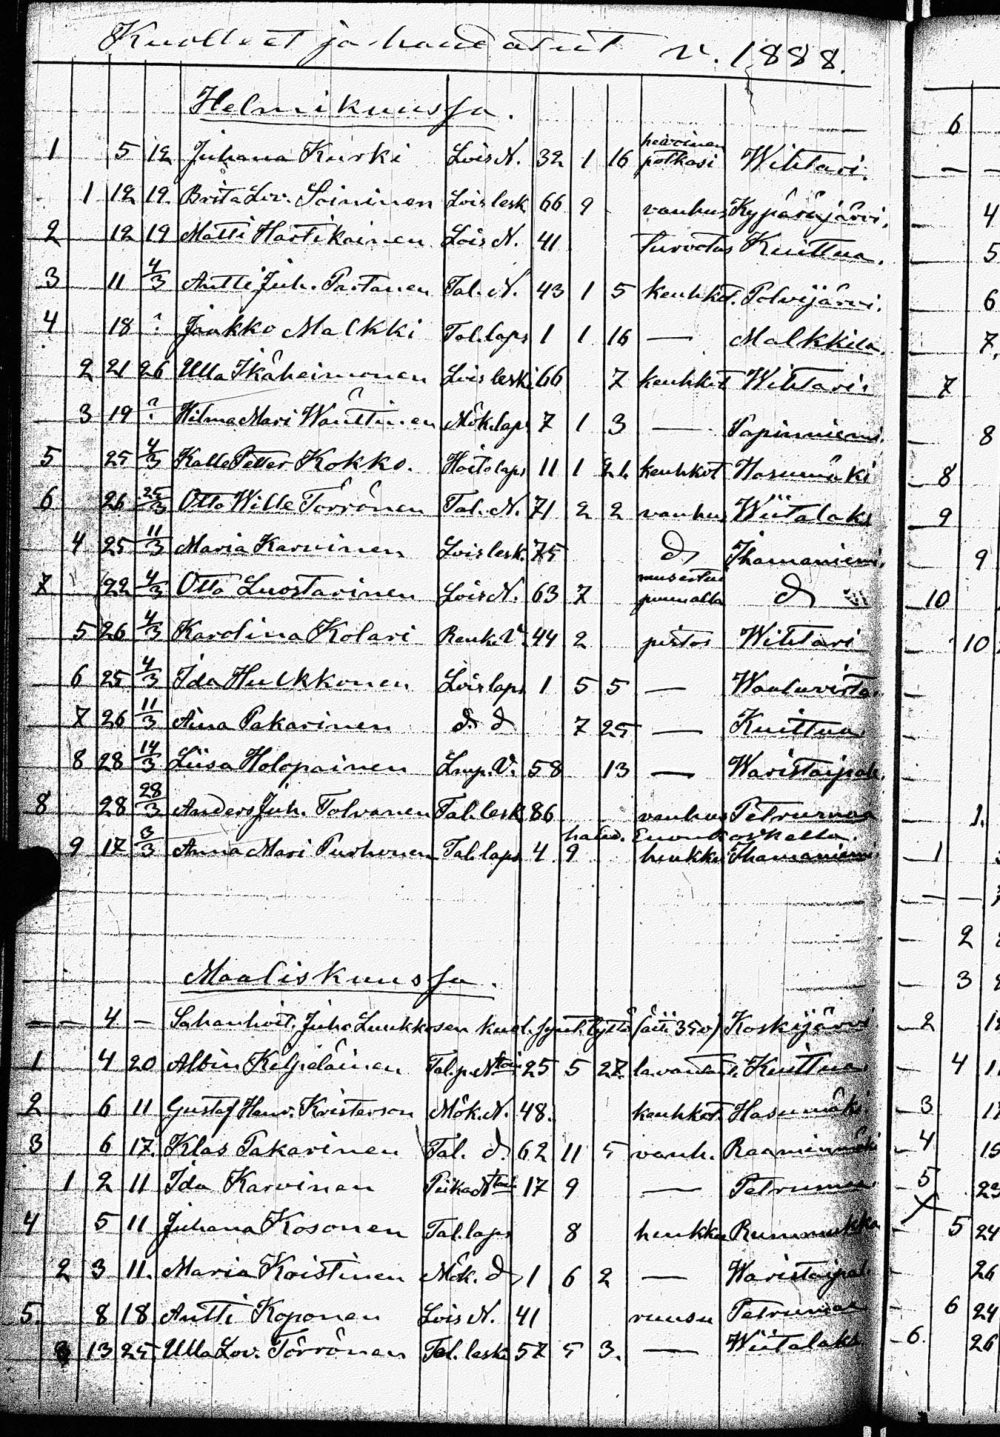 Kuolleet ja haudatut v. 1888.
Helmikuussa.
1 5 12 Juhana Kurki Lois N. 32 1 16 hevoinen potkasi Wihtari.
1 12 19. Brita Lov. Soininen Lois lesk 66 9 vanhus Kypäräjärvi.
2 12 19 Matti Hartikainen Lois N. 41 turvotus Kuittua.
3 11 4/3 Antti Juh. Partanen Tal. N. 43 1 5 keuhkot. Polvijärvi.
4 18 ? Jaakko Malkki Tal. laps 1 1 16 — Malkkila.
2 21 26 Ulla Ikäheimonen Lois leski 66 7 keuhkot Wihtari
3 19 ? Hilma Mari Wänttinen Mök. laps 7 1 3 — Papinniemi.
5 25 4/3 Kalle Petter Kokko. Hoito laps 11 1 21 keuhkot Hasumäki
6 26 25/3 Otto Wille Törrönen Tal. N. 71 2 2 vanhus Wiitalaks
4 25 11/3 Maria Karvinen Lois lesk. 75 d Ihamaniemi.
7 22 4/3 Otto Luostarinen Lois N. 63 7 musertui puun alla d
5 26 4/3 Karolina Kolari Renk. V. 44 2 pistos Wihtari
6 25 4/3 Ida Hulkkonen Lois laps 1 5 5 —
7 26 11/3 Aina Pakarinen d d 7 25 — Kuittua
8 28 14/3 Liisa Holopainen Lmp. V. 58 13 — Waristaipale.
8 28 28/3 Anders Juh. Tolvanen Tal. lesk 86 vanhus Petrumaa
haud. Enonkoskella.
9 17 3/3 Anna Mari Purhonen Tal. laps 4 9 hinkku Ihamaniemi
Maaliskuussa.
— 4 — Juho Luukkosen kuol. synt. tyttö (äiti 35v) Koskijärvi
1 4 20 Albin Keljeläinen 25 5 27 lavantau. Kuittua
2 6 11 Gustaf Henr. Kristerson Mök. N. 48. keuhkot. Hasumäki
3 6 17. Klas Pakarinen Tal. d 62 11 5 vanh. Raaminmäki
1 2 11 Ida Karvinen 17 9 — Petrumaa
4 5 11 Juhana Kosonen Tal. laps 8 hinkku Rummukka
2 3 11. Maria Koistinen Mök. d 1 6 2 — Waristaipal.
5. 8 18 Antti Koponen Lois N. 41 ruusu Petrumaa
3 13 25 Ulla Lov. Törrönen Tal. leski 57 5 3. — Wiitalaks
6
4
5
6
7,
7
8
8
9
9
10
10
1.
1
2
3
2
4
3
4
5
5 24
26
6 24
6. 26